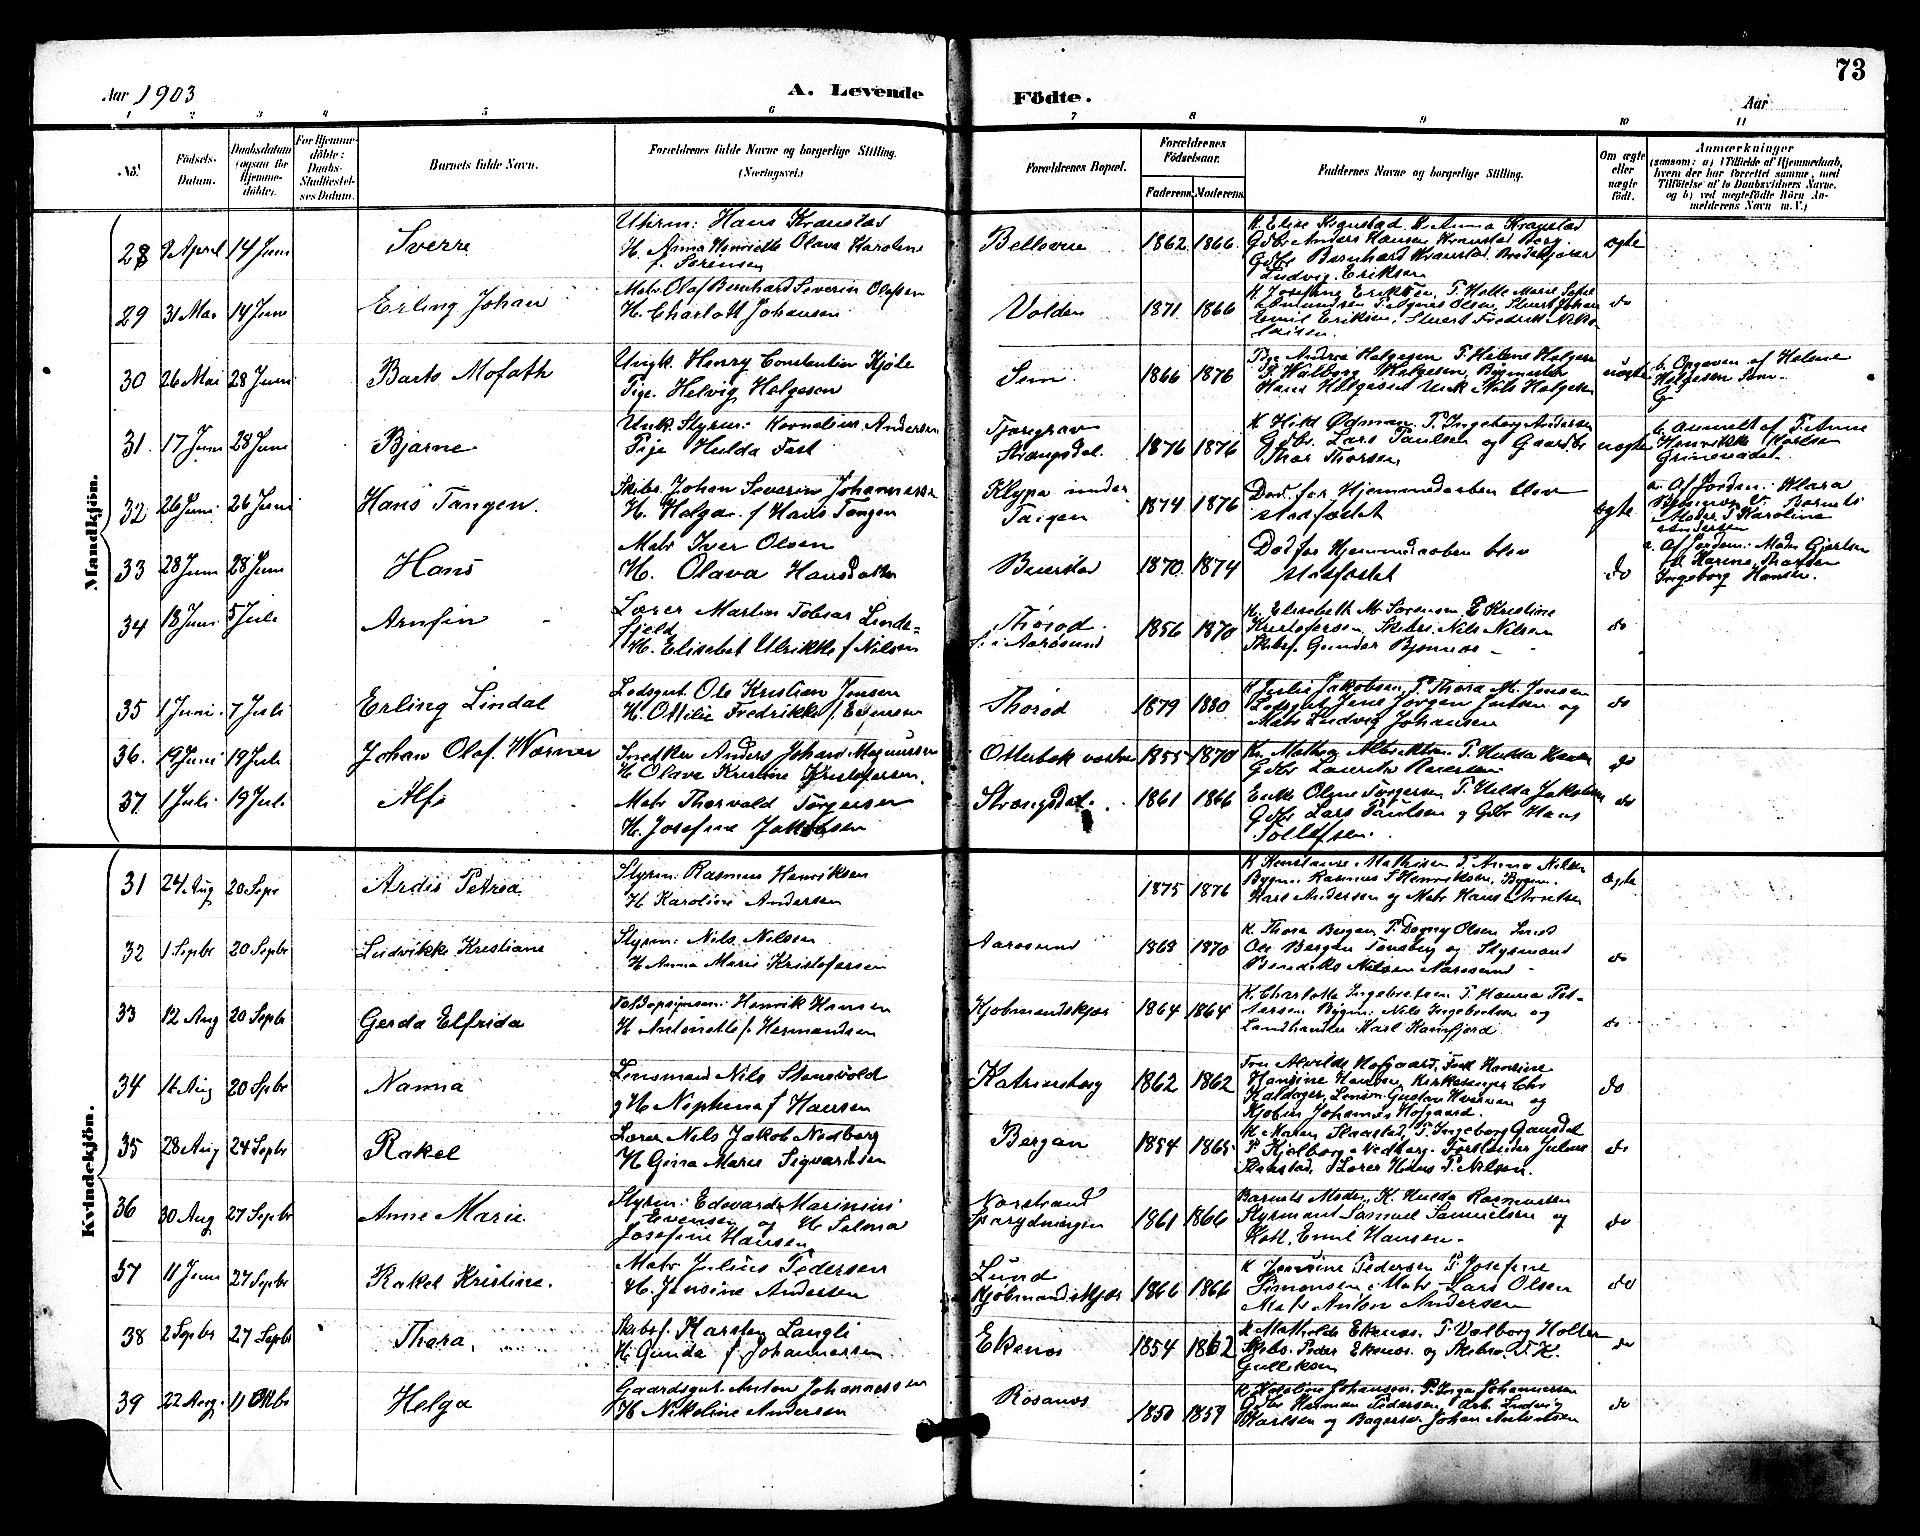 73
Aar 1903
A. Levende Födte.
Aar
1 2 3 4 5 6 7 8 9 10 11
No.
Födsels-Datum.
Daabsdatum (ogsaa for Hjemmedöbte).
For Hjemmedöbte: Daabs-Stadfæstelses Datum.
Barnets fulde Navn.
Forældrenes fulde Navne og borgerlige Stilling. (Næringsvei.)
Forældrenes Bopæl.
Forældrenes Födselsaar.
Faderens. Moderens.
Faddernes Navne og borgerlige Stilling.
Om ægte eller uægte födt.
Anmærkninger
(saasom: a) i Tilfælde af Hjemmedaab, hvem der har forrettet samme, med Tilföielse af to Daabsvidners Navne, og b) ved uægtefödte Börn Anmelderens Navn m. V.)
Mandkjön.
28 9 April 14 Juni Sverre
Uhrm: Hans Kranstad
H. Anna Henriette Olava Karoline f. Sörensen
Bellevue 1862 1866
ægte
29 31 Mai 14 Juni Erling Johan
Matr Olaf Bernhard Severin Olafsen
H. Charlott Johansen
Volden 1871 1866
Emil Eriksen
do
30 26 Mai 28 Juni Barto Mofath
Ungk. Henry Constantin Kjöle
Pige. Helvig Helgesen
Sem 1866 1876
Pige Andrea Helgesen P. Helene Helgesen
P. Walborg Helgesen, Bygmester
Hans Helgesen Unk Nils Helgesen
uægte
b. Opgaven af Helene Helgesen Sem.
31. 17 Juni 28 Juni Bjarne
Unk. Styrm: Kornelius Andersen
Pige Hulda Fast
Strengsdal. 1876 1876
K. Hild Ödman. P. Ingeborg Andersen
Gdbr. Lars Paulsen og Gaardbr
Thor Thorsen
uægte
b. Anmeldt af P. Anne
Henrikke Karlsen
32 26 Juni 26 Juni Hans Tangen.
Skibs. Johan Severin Johannessen
H. Helga f Hans Tangen
Klypa under Taigen 1874 1876
Död før Hjemmedaaben blev
stadfæstet
ægte
a. Af Jordm: Klara
Moder P Karoline
Andersen
33 28 Juni 28 Juni Hans
Matr Iver Olsen
H. Olava Hansdatter
1870. 1874
Död før Hjemmedaaben blev
stadfæstet
do
a. Af Jordm: Mads Gjertsen
Ingeborg Hansen.
34 18 Juni 5 Juli Arnfin
Lærer Martin Tobias Lindefjeld
H. Elisabet Ulrikke f Nilsen
Thöröd. f. i Aarøsund 1856 1870
K. Elisabeth M. Sörensen P Kristine
Kristofersen, Skibs. Nils Nilsen
Skibsf. Gunder Bjønnes
do
35 1 Juni. 7 Juli Erling Lindal
Lodsgut. Ole Kristian Jensen
H. Ottilie Fredrikke f. Evensen
Thøröd 1879 1880
K Julie Jakobsen, P. Thora M. Jensen
Lodsgut Jens Jörgen Jensen og
Matr Ludvig Johansen
do
36. 19 Juni 19 Juli Johan Olaf Werner
Snedker Anders Johan Magnussen
H Olava Kristine Kristofersen.
Otterbek vestre 1855 1870
do
37. 1 Juli 19 Juli Alf
Matr Thorvald Torgersen
H. Josefine Jakobsen
Strengsdal. 1861 1866
Enke Olgine Torgersen P. Hilda Jakobsen
Gdbr Lars Paulsen og Gdbr Hans
Tollefsen.
do
Kvindekjön.
31 24 Aug 20 Sepbr Ardis Petrea
Styrm: Rasmus Henriksen
H Karoline Andersen
1875 1876
K. Konstance Mathisen P. Anna Nilsen
Bygm. Rasmus Henriksen, Bygm.
Karl Andersen og Matr Hans Arntsen
ægte
32 1 Sepbr 20 Sepbr Ludvikke Kristiane
Styrm: Nils Nilsen
H Anna Marie Kristofersen
Aarøsund 1868 1870
K. Thora Bergan P. Dagny Olsen Lund
Ole Bergan Tønsberg og Styrmand
Bendiks Nilsen Aarøsund
do
33 12 Aug 20 Sepbr Gerda Elfrida
Toldopsynsm: Henrik Hansen
H Antonette f Hermansen
Kjöbmandskjær 1864 1864
K. Charlotte Ingebretsen P. Hanna Pettersen
Bygm: Nils Ingebretsen og
Landhandler Karl Ramfjord
do
34 16 Aug 20 Spbr Nanna
Lensmand Nils Stensvold
og H Nephina f Hansen
Katrineborg 1862 1862
Fru Alvilde Hofgaard, Frk Hansine
Hansine Hansen, Kirkesanger Chr
Kaldager, Lensm. Gustav Hvarven og
Kjöbm Johannes Hofgaard.
do
35 28 Aug 24 Sepbr Rakel
Lærer Nils Jakob Nedberg
H Gina Marie Sigvardsen
Bergan 1854 1865
K. Maren Staastad, P. Ingeborg Gausdal
P. Kjelborg Nedberg. Forstander Julius
Stakstad, Lærer Hans P. Nilsen.
do
36 30 Aug 27 Sepbr Anne Marie
Styrm: Edevard Marinius
Evensen og H Selma
Josefine Hansen
Norstrand
1861 1866
Barnets Moder, K. Hulda Rasmussen
Styrmand Samuel Samuelsen og
Matr. Emil Hansen.
do
37 11 Juni 27 Sepbr Rakel Kristine.
Matr Julius Pedersen
H. Jensine Andersen
Lund Kjøbmandskjær 1866 1866
K Jensine Pedersen P. Josefine
Simonsen, Matr Lars Olsen
Matr Anton Andersen
do
38 2 Sepbr 27 Sepbr Thora,
Skibsf. Karsten Langli
H Gunda f Johannessen
Ekenes 1854 1862
K. Mathilde Ekenes. P. Valborg Holter
Skibs. Peder Ekenes og Skibsr. T. K.
Gulliksen
do
39 22 Aug. 11 Oktbr Helga
Gaardsgut. Anton Johannessen
H Nikoline Andersen
Rosanes 1850 1859
K. Karoline Johansen. P. Inga Johannessen
Gdbr Herman Pedersen, Arb. Ludvig
Karlsen og Bagersv. Johan Antonsen
do